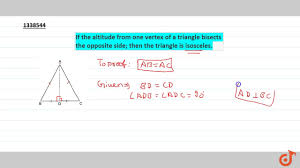 1338544
If the altitude from one vertex of a triangle bisects
the opposite side; then the triangle is isosceles.
To proof: AB=AC
Given: BD = CD
∠ADB = ∠ADC = 90°
AD⊥BC
A
B D C